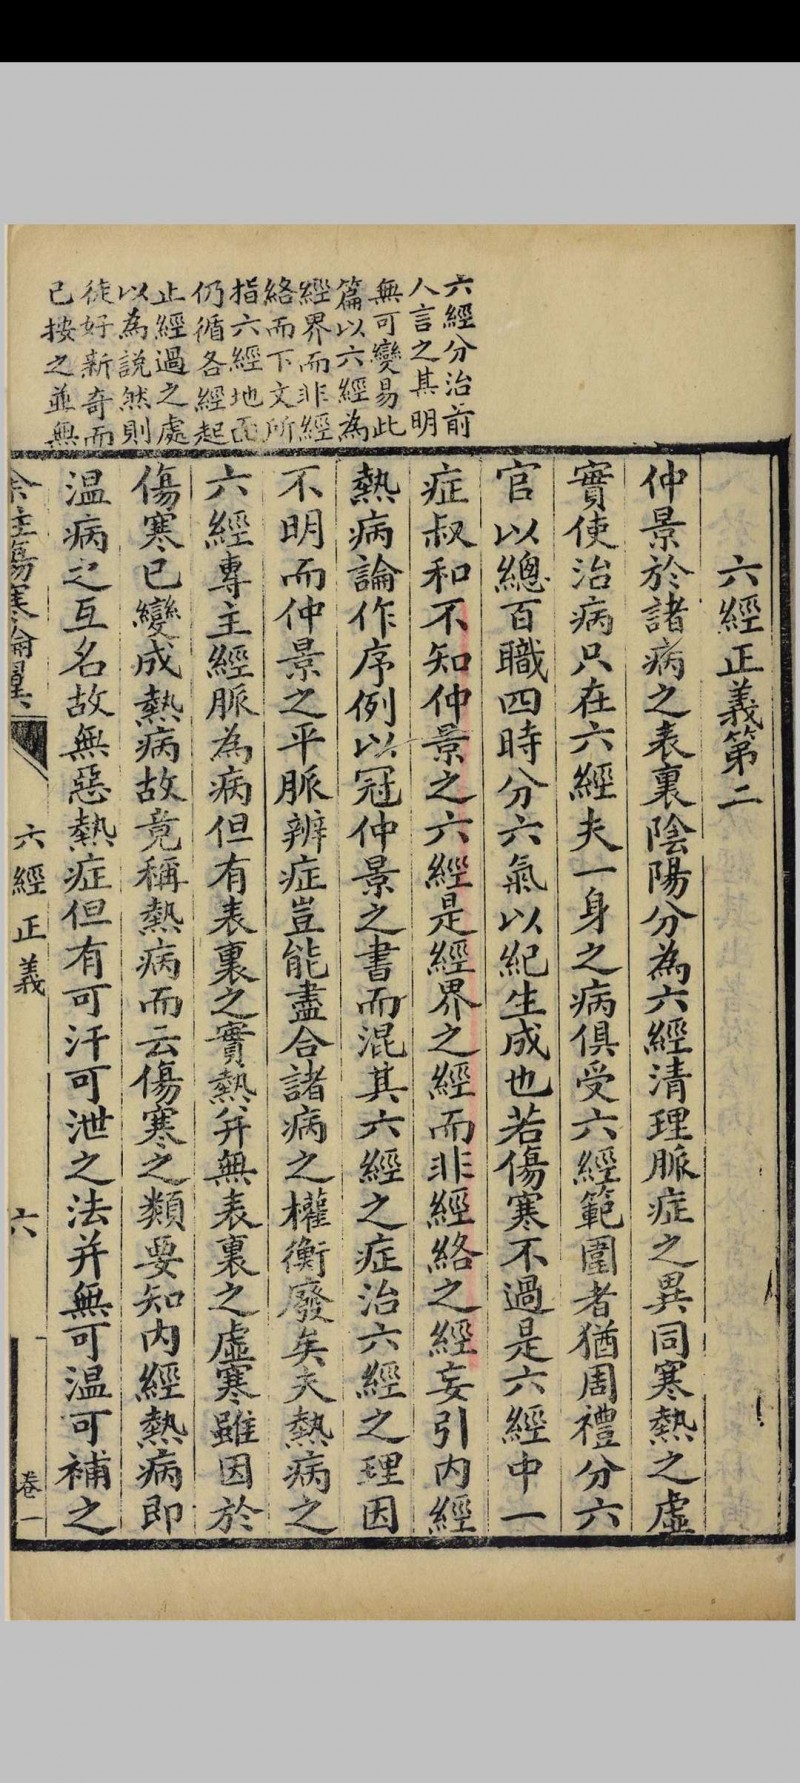 六經分治前
人言之其明
無可變易此
篇以六經為
經界而非經
絡而下文所
指六經地面
仍循各經起
止經過之處
以為說然則
徒好新奇而
已按之並無
六經正義第二
仲景於諸病之表裏陰陽分為六經清理脈症之異同寒熱之虛
實使治病只在六經夫一身之病俱受六經範圍者猶周禮分六
官以總百職四時分六氣以紀生成也若傷寒不過是六經中一
症叔和不知仲景之六經是經界之經而非經絡之經妄引內經
熱病論作序例以冠仲景之書而混其六經之症治六經之理因
不明而仲景之平脈辨症豈能盡合諸病之權衡廢矣夫熱病之
六經專主經脈為病但有表裏之實熱并無表裏之虛寒雖因於
傷寒已變成熱病故竟稱熱病而云傷寒之類要知內經熱病即
溫病之互名故無惡熱症但有可汗可泄之法并無可溫可補之
傷寒論翼 六經正義 六 卷一